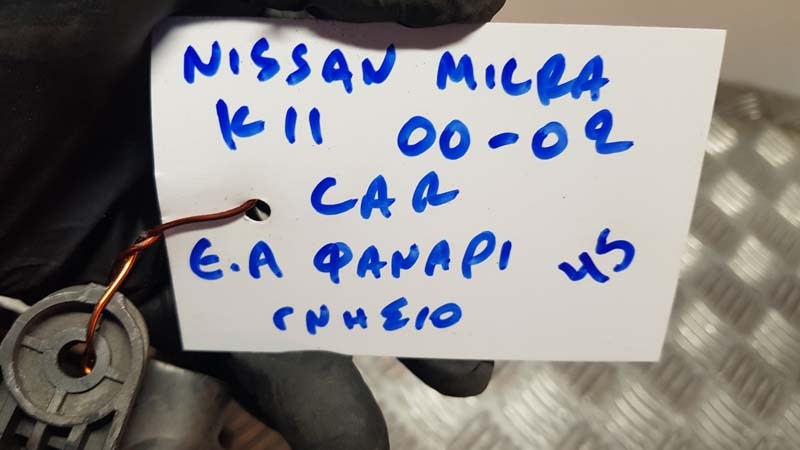 NISSAN MICRA
K11 00-02
CAR
Ε.Α ΦΑΝΑΡΙ 45
ΓΝΗΣΙΟ